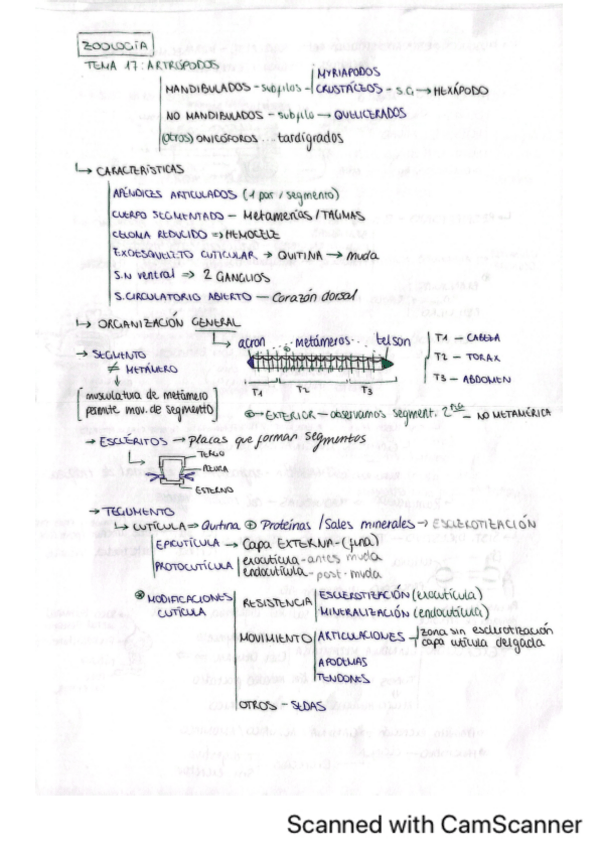 ZOOLOGÍA
TEMA 17: ARTRÓPODOS
MYRIAPODOS
MANDIBULADOS - subfilos - CRUSTÁCEOS - S.G → HEXÁPODO
NO MANDIBULADOS - subfilo → QUELICERADOS
(otros) ONICÓFOROS ... tardígrados
↳ CARACTERÍSTICAS
APÉNDICES ARTICULADOS (1 par / segmento)
CUERPO SEGMENTADO - Metamerías / TAGMAS
CELOMA REDUCIDO ⇒ HEMOCELE
EXOESQUELETO CUTICULAR → QUITINA → muda
S.N ventral ⇒ 2 GANGLIOS
S. CIRCULATORIO ABIERTO - Corazón dorsal
↳ ORGANIZACIÓN GENERAL
↳ acron ... metámeros ... telson
T1 - CABEZA
T2 - TORAX
T3 - ABDOMEN
→ SEGMENTO
≠ METÁMERO
T1 T2 T3
musculatura de metámero
permite mov. de segmento
EXTERIOR - observamos segment. 2ria - NO METAMÉRICA
→ ESCLÉRITOS → placas que forman segmentos
TERGO
PLEURA
ESTERNO
→ TEGUMENTO
↳ CUTÍCULA ⇒ Quitina ⊕ Proteínas / Sales minerales → ESCLEROTIZACIÓN
EPICUTÍCULA → Capa EXTERNA - (fina)
PROTOCUTÍCULA exocutícula - antes muda
endocutícula - post - muda
MODIFICACIONES CUTÍCULA
RESISTENCIA ESCLEROTIZACIÓN (exocutícula)
MINERALIZACIÓN (endocutícula)
MOVIMIENTO ARTICULACIONES - zona sin esclerotización
capa utícula delgada
APODEMAS
TENDONES
OTROS - SEDAS
Scanned with CamScanner